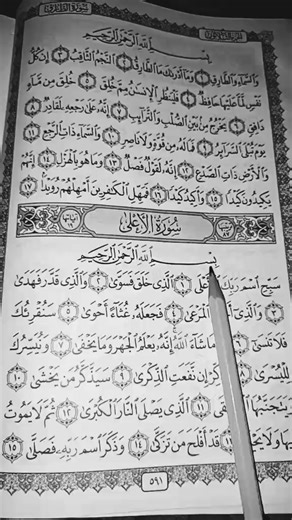 سُورَةُ الطَّارِقِ الجُزْءُ الثَّلَاثُونَ
بِسْمِ ٱللَّهِ ٱلرَّحْمَٰنِ ٱلرَّحِيمِ
وَٱلسَّمَآءِ وَٱلطَّارِقِ ١ وَمَآ أَدْرَىٰكَ مَا ٱلطَّارِقُ ٢ ٱلنَّجْمُ ٱلثَّاقِبُ ٣ إِن كُلُّ
نَفْسٍ لَّمَّا عَلَيْهَا حَافِظٌ ٤ فَلْيَنظُرِ ٱلْإِنسَٰنُ مِمَّ خُلِقَ ٥ خُلِقَ مِن مَّآءٍ
دَافِقٍ ٦ يَخْرُجُ مِنۢ بَيْنِ ٱلصُّلْبِ وَٱلتَّرَآئِبِ ٧ إِنَّهُۥ عَلَىٰ رَجْعِهِۦ لَقَادِرٌ ٨
يَوْمَ تُبْلَى ٱلسَّرَآئِرُ ٩ فَمَا لَهُۥ مِن قُوَّةٍ وَلَا نَاصِرٍ ١٠ وَٱلسَّمَآءِ ذَاتِ ٱلرَّجْعِ ١١
وَٱلْأَرْضِ ذَاتِ ٱلصَّدْعِ ١٢ إِنَّهُۥ لَقَوْلٌ فَصْلٌ ١٣ وَمَا هُوَ بِٱلْهَزْلِ ١٤ إِنَّهُمْ
يَكِيدُونَ كَيْدًا ١٥ وَأَكِيدُ كَيْدًا ١٦ فَمَهِّلِ ٱلْكَٰفِرِينَ أَمْهِلْهُمْ رُوَيْدًۢا ١٧
سُورَةُ الأَعْلَى
بِسْمِ ٱللَّهِ ٱلرَّحْمَٰنِ ٱلرَّحِيمِ
سَبِّحِ ٱسْمَ رَبِّكَ ٱلْأَعْلَى ١ ٱلَّذِى خَلَقَ فَسَوَّىٰ ٢ وَٱلَّذِى قَدَّرَ فَهَدَىٰ
٣ وَٱلَّذِىٓ ٱلْمَرْعَىٰ ٤ فَجَعَلَهُۥ غُثَآءً أَحْوَىٰ ٥ سَنُقْرِئُكَ
فَلَا تَنسَىٰٓ ٦ مَا شَآءَ ٱللَّهُ إِنَّهُۥ يَعْلَمُ ٱلْجَهْرَ وَمَا يَخْفَىٰ ٧ وَنُيَسِّرُكَ
لِلْيُسْرَىٰ ٨ إِن نَّفَعَتِ ٱلذِّكْرَىٰ ٩ سَيَذَّكَّرُ مَن يَخْشَىٰ ١٠
وَيَتَجَنَّبُهَا ١١ ٱلَّذِى يَصْلَى ٱلنَّارَ ٱلْكُبْرَىٰ ١٢ ثُمَّ لَا يَمُوتُ
فِيهَا وَلَا ١٣ قَدْ أَفْلَحَ مَن تَزَكَّىٰ ١٤ وَذَكَرَ ٱسْمَ رَبِّهِۦ فَصَلَّىٰ ١٥
٥٩١